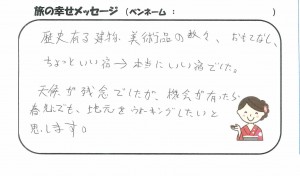 旅の幸せメッセージ（ペンネーム：　　　　　）
歴史有る建物、美術品の数々、おもてなし、
ちょっといい宿→本当にいい宿でした。
天候が残念でしたが、機会が有たら
春にでも、地元をウォーキングしたいと
思します。